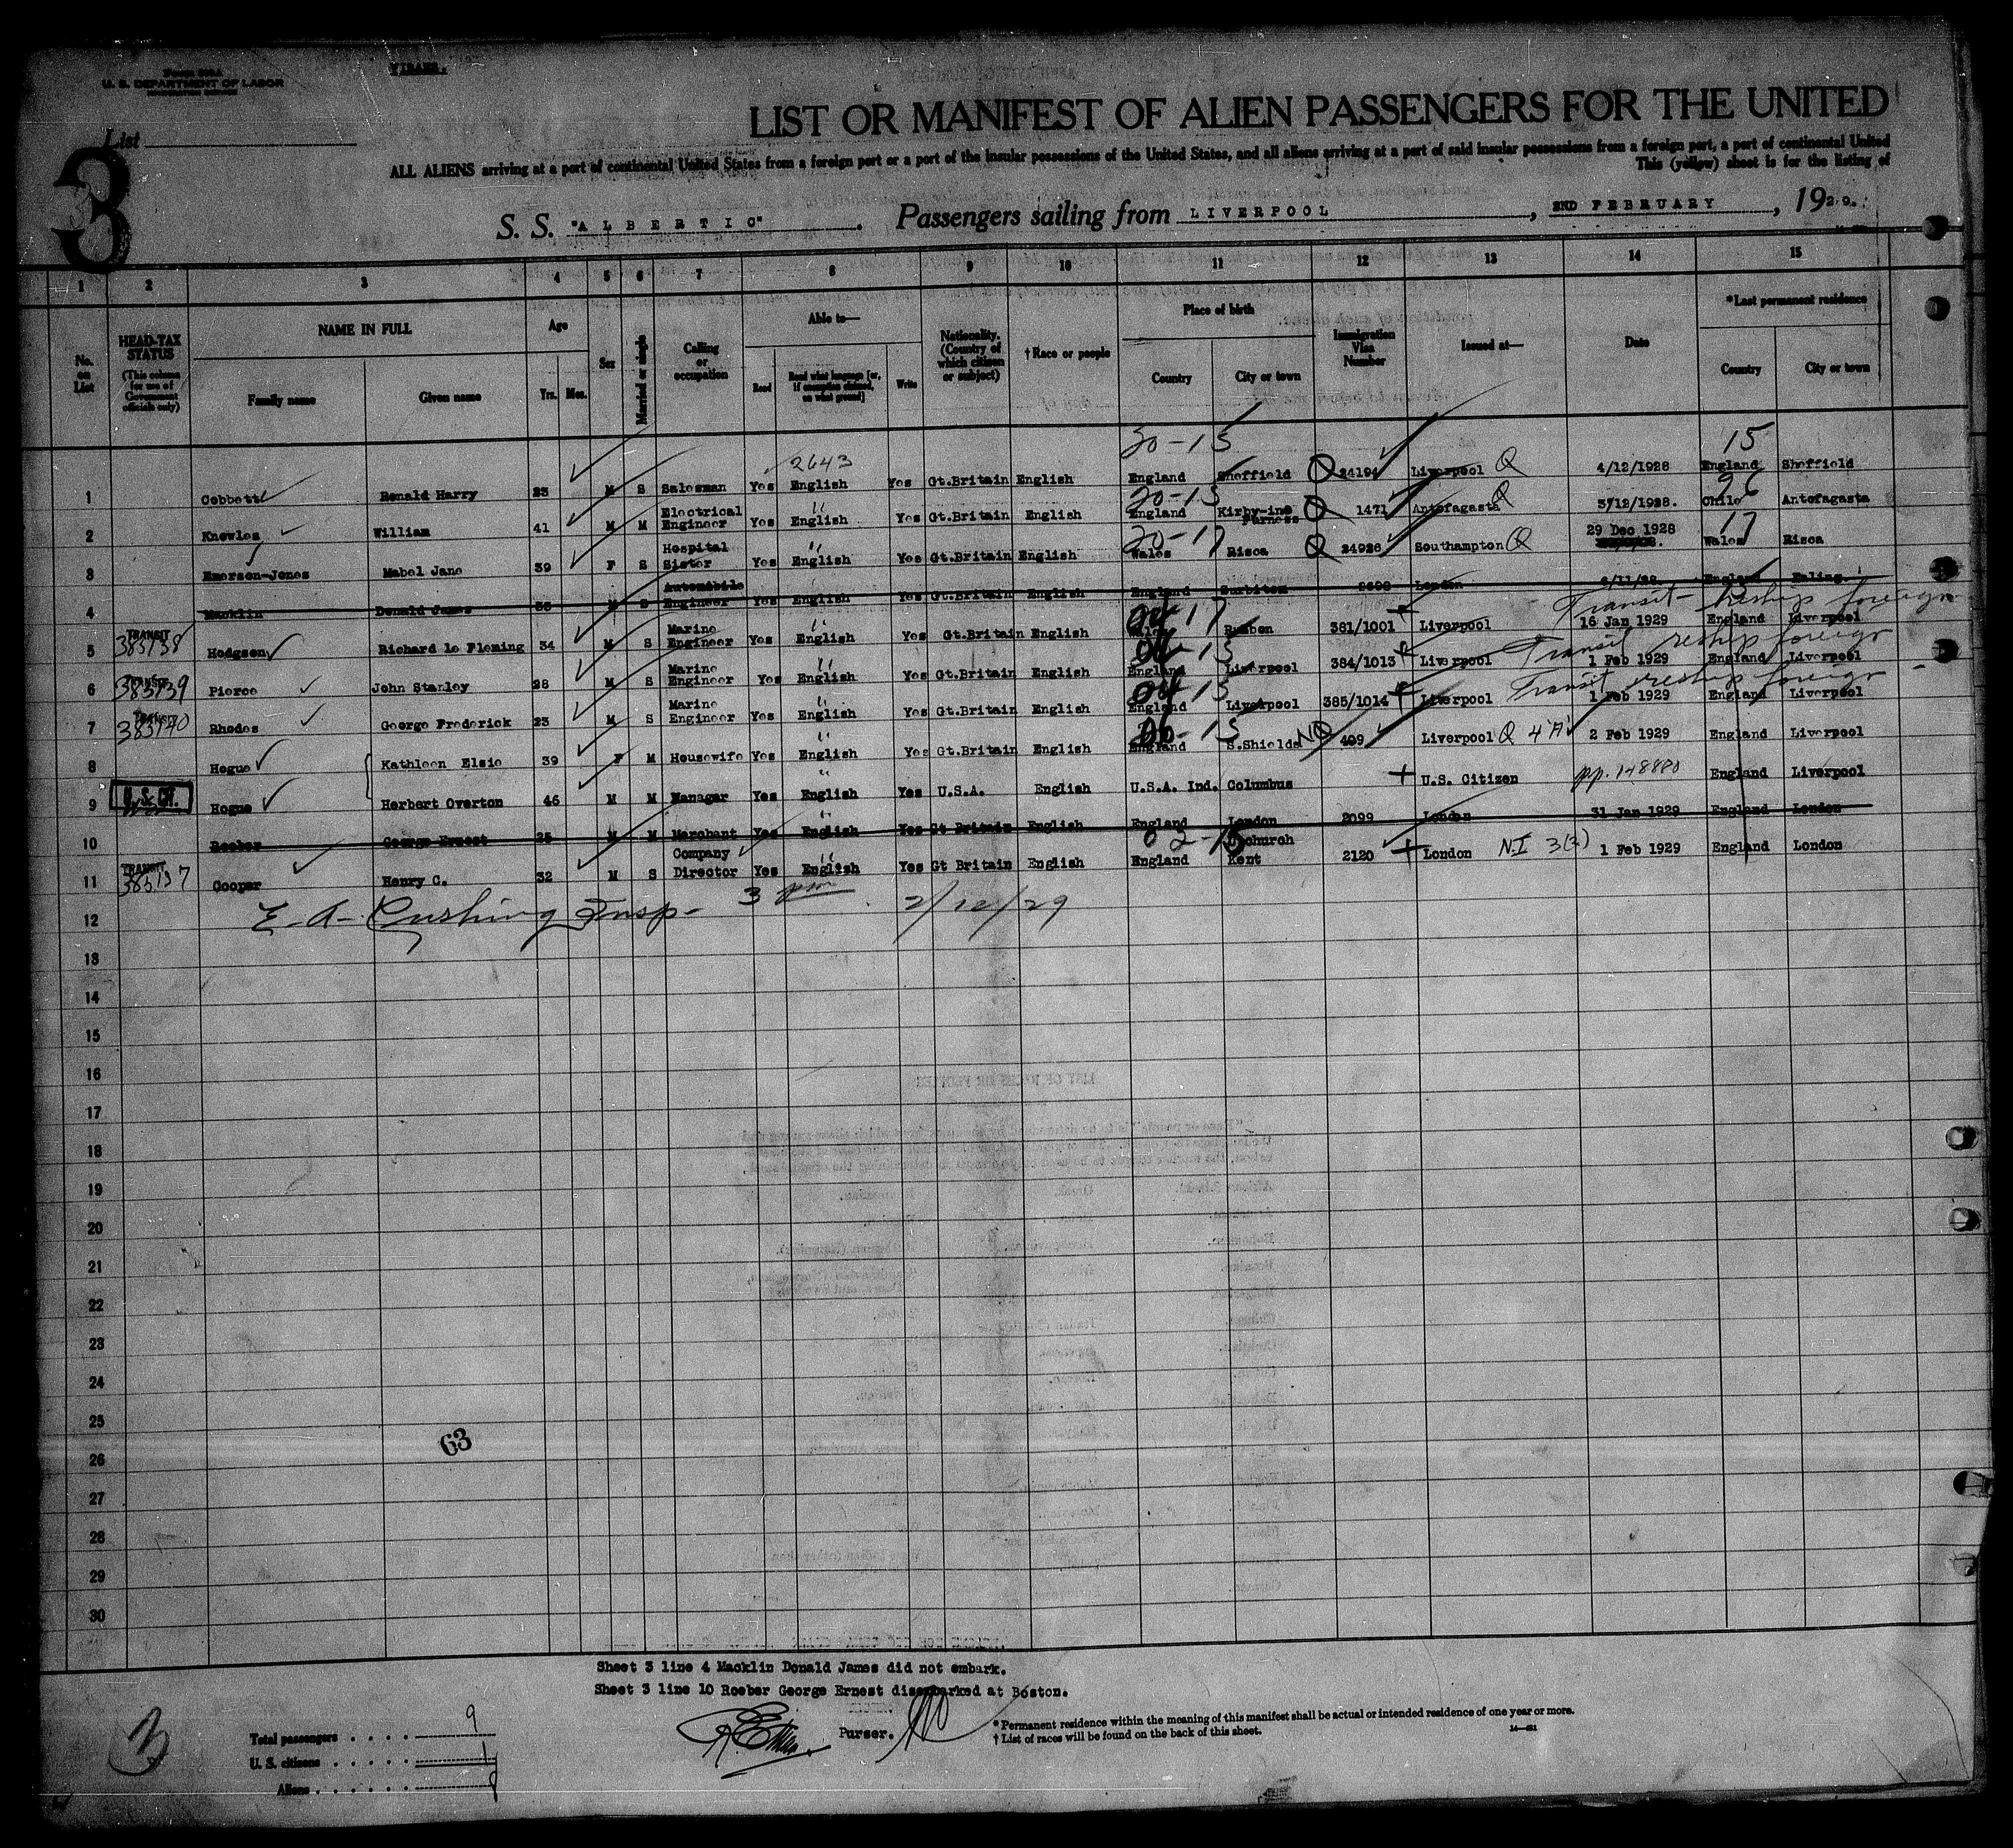 U. S. DEPARTMENT OF LABOR
List
3
LIST OR MANIFEST OF ALIEN PASSENGERS FOR THE UNITED
ALL ALIENS arriving at a port of continental United States from a foreign port or a port of the insular possessions of the United States, and all aliens arriving at a port of said insular possessions from a foreign port, a port of continental United
This (yellow) sheet is for the listing of
S. S. "ALBERTIC". Passengers sailing from LIVERPOOL, 2ND FEBRUARY, 1929.
1 2 3 4 5 6 7 8 9 10 11 12 13 14 15
No. on List
HEAD-TAX STATUS (This column for use of Government officials only)
NAME IN FULL
Family name Given name
Age Yrs. Mos.
Sex
Married or single
Calling or occupation
Able to—
Read Read what language [or, if exemption claimed, on what ground] Write
Nationality. (Country of which citizen or subject)
†Race or people
Place of birth
Country City or town
Immigration Visa Number
Issued at—
Date
*Last permanent residence
Country City or town
20-15 15
2643
1 Cobbett Ronald Harry 23 M S Salesman Yes English Yes Gt.Britain English England Sheffield 24194 Liverpool Q 4/12/1928 England Sheffield
20-15 26
2 Knowles William 41 M M Electrical Engineer Yes English Yes Gt.Britain English England Kirby-ine Furness 1471 Antofagasta Q 3/12/1928. Chile Antofagasta
20-17 17
3 Emerson-Jones Mabel Jane 39 F S Hospital Sister Yes English Yes Gt.Britain English Wales Risca 24926 Southampton Q 29 Dec 1928 Wales Risca
4 Macklin Donald James M S Automobile Engineer Yes English Yes Gt.Britain English England Surbiton London England Ealing.
Transit - reship foreign
TRANSIT 385138
5 Hodgson Richard le Fleming 34 M S Marine Engineer Yes English Yes Gt.Britain English 381/1001 Liverpool 16 Jan 1929 England Liverpool
Transit reship foreign
TRANSIT 385139
6 Pierce John Stanley 28 M S Marine Engineer Yes English Yes Gt.Britain English England Liverpool 384/1013 Liverpool 1 Feb 1929 England Liverpool
Transit reship foreign
TRANSIT 385140
7 Rhodes George Frederick 23 M S Marine Engineer Yes English Yes Gt.Britain English England Liverpool 385/1014 Liverpool 1 Feb 1929 England Liverpool
8 Hogue Kathleen Elsie 39 F M Housewife Yes English Yes Gt.Britain English England S.Shields NQ 409 Liverpool Q 4'A' 2 Feb 1929 England Liverpool
U.S. CIT.
9 Hogue Herbert Overton 46 M M Manager Yes English Yes U.S.A. English U.S.A. Ind. Columbus U.S. Citizen pp. 148880 England Liverpool
10 Roeber George Ernest 25 M M Merchant Yes English Yes Gt Britain English England London 2099 London 31 Jan 1929 England London
02-15
TRANSIT 385137
11 Cooper Henry C. 32 M S Company Director Yes English Yes Gt Britain English England Kent 2120 London N.I 3(2) 1 Feb 1929 England London
12 E-A- Cushing Insp- 3 pm 2/12/29
13
14
15
16
17
18
19
20
21
22
23
24
25
63
26
27
28
29
30
Sheet 3 line 4 Macklin Donald James did not embark.
Sheet 3 line 10 Roeber George Ernest disembarked at Boston.
Purser.
* Permanent residence within the meaning of this manifest shall be actual or intended residence of one year or more.
† List of races will be found on the back of this sheet.
3
Total passengers . . . . 9
U. S. citizens . . . . . 1
Aliens . . . . . . . 8